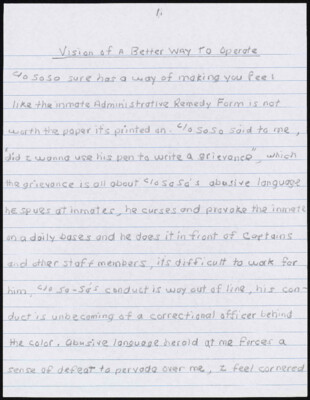 1.
Vision of A Better Way To Operate
C/O SoSo sure has a way of making you feel
like the inmate Administrative Remedy Form is not
worth the paper its printed on. C/O SoSo said to me,
"did I wanna use his pen to write a grievance", which
the grievance is all about C/O SoSo's abusive language
he spues at inmates, he curses and provoke the inmate
on a daily bases and he does it in front of Captains
and other staff members, its difficult to work for
him. C/O So-So's conduct is way out of line, his con-
duct is unbecoming of a correctional officer behind
the color. Abusive language herold at me forces a
sense of defeat to pervade over me, I feel cornered